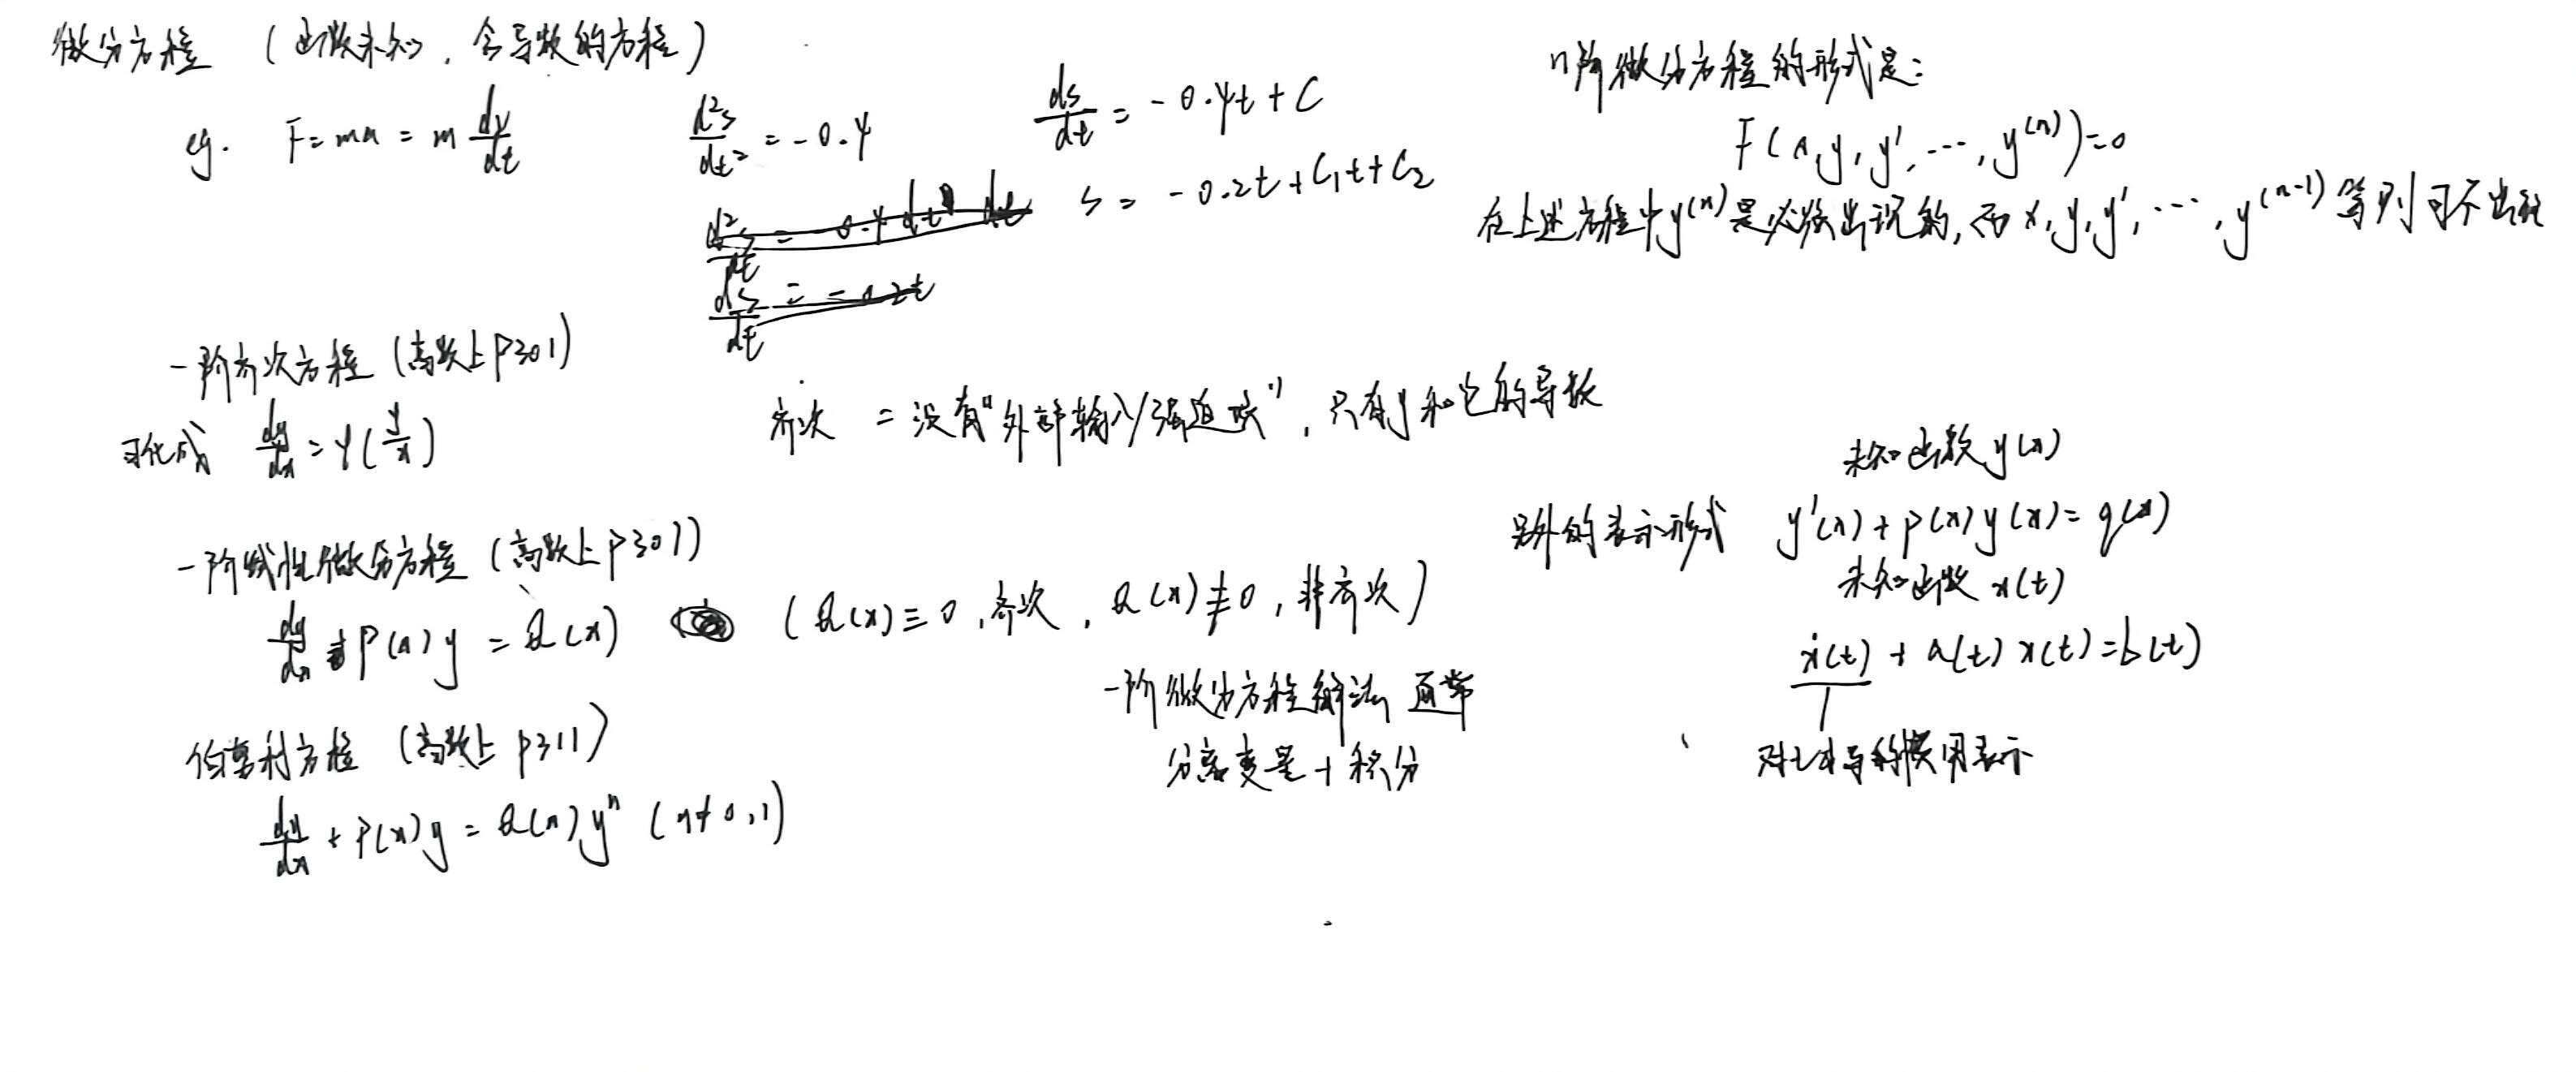 微分方程 (函数未知, 含导数的方程)
eg. F = ma = m dv/dt
d²s/dt² = -0.4
ds/dt = -0.4t + C
s = -0.2t + C₁t + C₂
n阶微分方程的形式是:
F(x, y, y', ⋯, y⁽ⁿ⁾)=0
在上述方程中y⁽ⁿ⁾是必须出现的, 而 x, y, y', ⋯, y⁽ⁿ⁻¹⁾ 等则可不出现
一阶齐次方程 (高数上P301)
可化成 dy/dx = φ(y/x)
齐次 = 没有"外部输入/强迫项", 只有y和它的导数
一阶线性微分方程 (高数上P307)
dy/dx + P(x)y = Q(x) (Q(x)≡0, 齐次, Q(x)≢0, 非齐次)
另外的表示形式
未知函数y(x)
y'(x) + p(x)y(x) = q(x)
未知函数 x(t)
ẋ(t) + a(t)x(t) = b(t)
对t求导的惯用表示
一阶微分方程解法 通常
分离变量+积分
伯努利方程 (高数上 P311)
dy/dx + P(x)y = Q(x)yⁿ (n≠0,1)